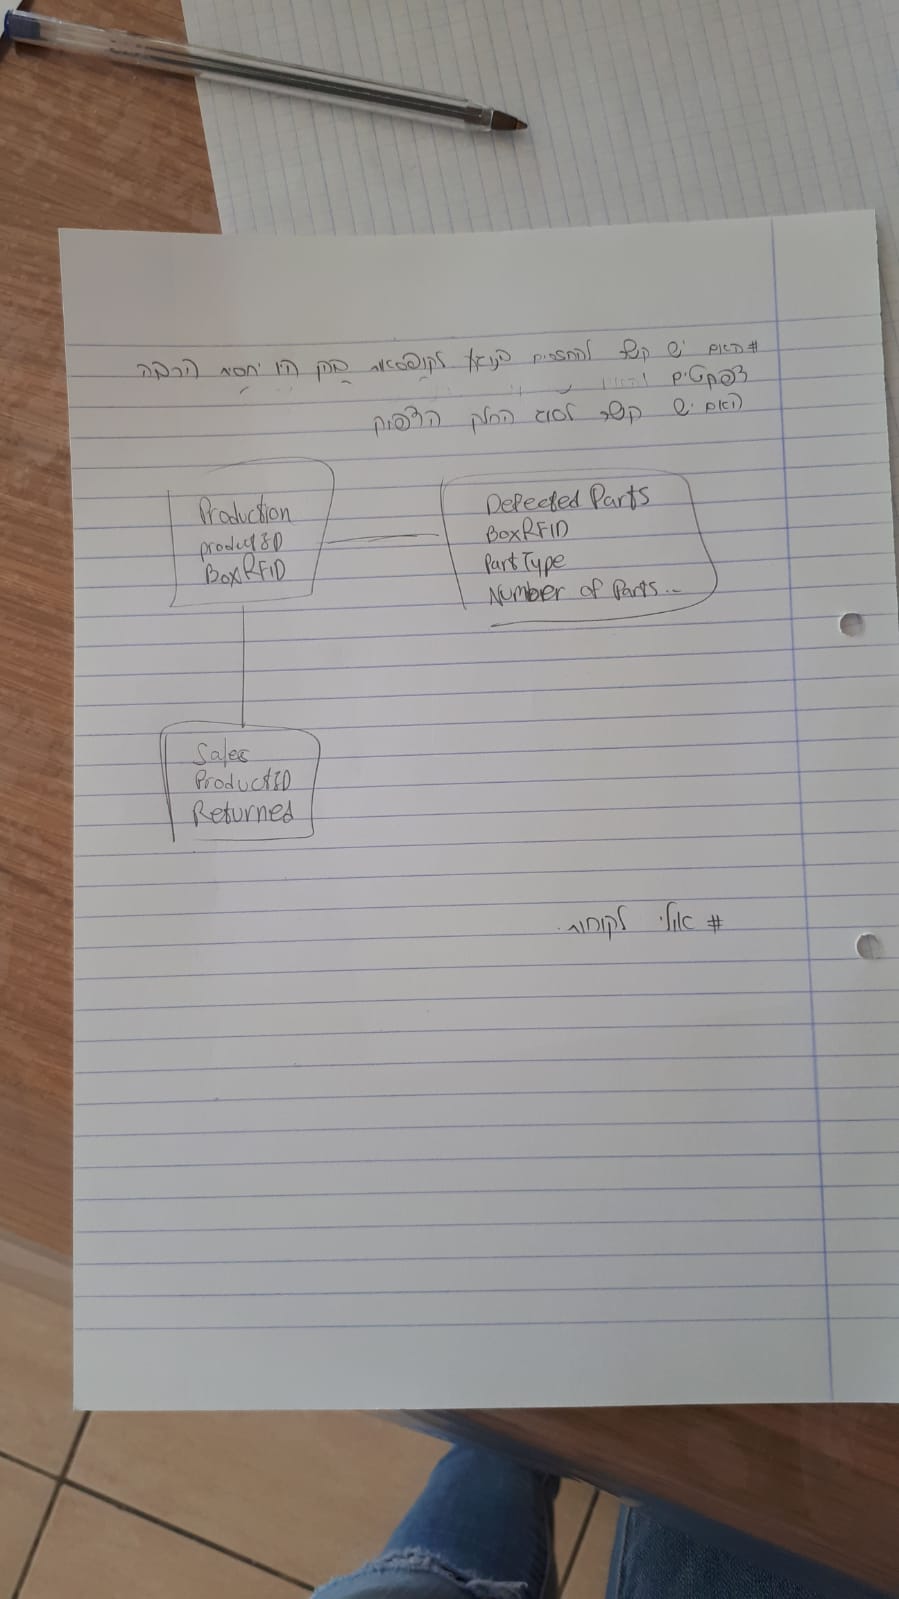 # האם יש קשר להחזרים בין לקופסאות בהן היו יחסית הרבה
דפקטים
האם יש קשר לסוג החלק הדפוק
Production
productID
BoxRFID
Defected Parts
BoxRFID
PartType
Number of Parts...
Sales
ProductID
Returned
# אולי לקוחות.